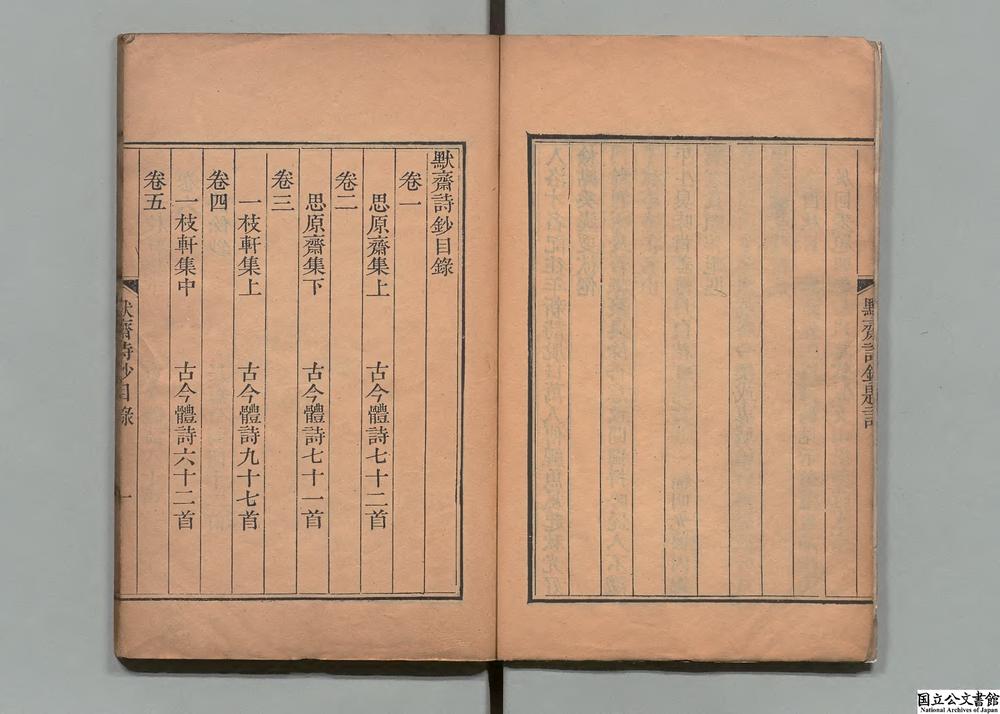 默齋詩鈔題詞
默齋詩鈔目錄
卷一
思原齋集上　古今體詩七十二首
卷二
思原齋集下　古今體詩七十一首
卷三
一枝軒集上　古今體詩九十七首
卷四
一枝軒集中　古今體詩六十二首
卷五
默齋詩鈔目錄　一
国立公文書館
National Archives of Japan